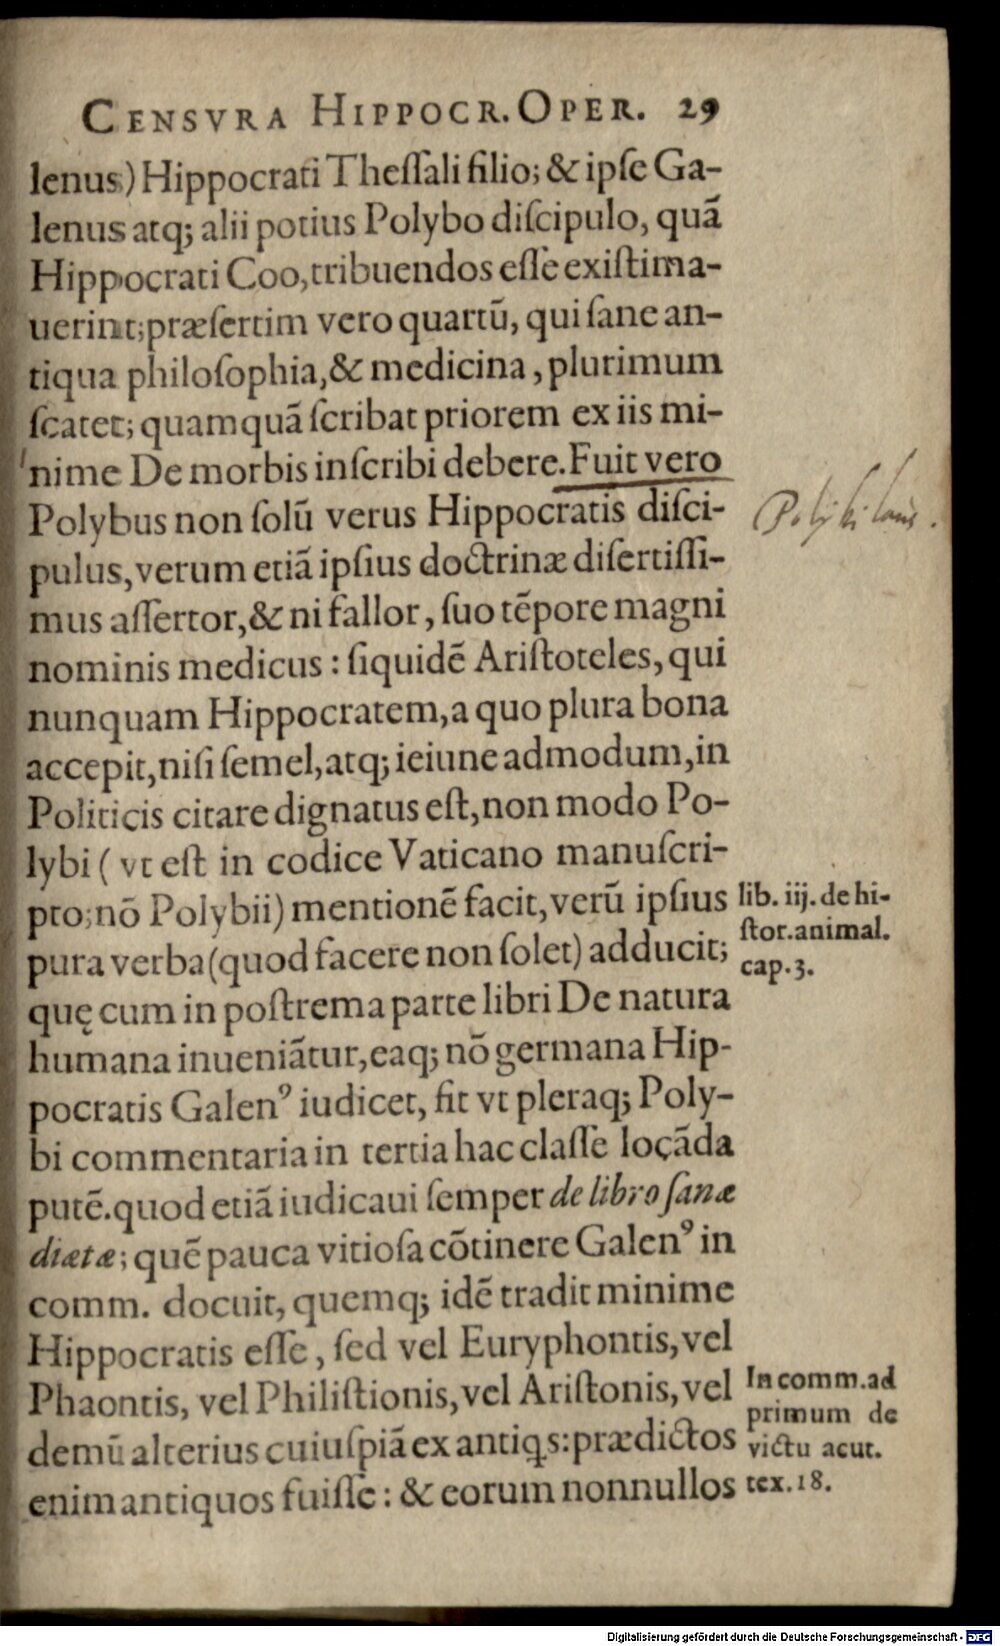 CENSVRA HIPPOCR. OPER. 29
lenus) Hippocrati Theſſali filio; & ipſe Ga-
lenus atq; alii potius Polybo diſcipulo, quã
Hippocrati Coo, tribuendos eſſe exiſtima-
uerint; præſertim vero quartũ, qui ſane an-
tiqua philoſophia, & medicina, plurimum
ſcatet; quamquã ſcribat priorem ex iis mi-
nime De morbis inſcribi debere. Fuit vero
Polybus non ſolũ verus Hippocratis diſci-
pulus, verum etiã ipſius doctrinæ diſertiſſi-
mus aſſertor, & ni fallor, ſuo tẽpore magni
nominis medicus: ſiquidẽ Ariſtoteles, qui
nunquam Hippocratem, a quo plura bona
accepit, niſi ſemel, atq; ieiune admodum, in
Politicis citare dignatus eſt, non modo Po-
lybi (vt eſt in codice Vaticano manuſcri-
pto; nõ Polybii) mentionẽ facit, verũ ipſius
pura verba (quod facere non ſolet) adducit;
quę cum in poſtrema parte libri De natura
humana inueniãtur, eaq; nõ germana Hip-
pocratis Galenꝰ iudicet, fit vt pleraq; Poly-
bi commentaria in tertia hac claſſe locãda
putẽ. quod etiã iudicaui ſemper de libro ſanæ
diætæ; quẽ pauca vitioſa cõtinere Galenꝰ in
comm. docuit, quemq; idẽ tradit minime
Hippocratis eſſe, ſed vel Euryphontis, vel
Phaontis, vel Philiſtionis, vel Ariſtonis, vel
demũ alterius cuiuſpiã ex antiq̃s: prædictos
enim antiquos fuiſſe: & eorum nonnullos
Polybi laus.
lib. iij. de hi-
ſtor. animal.
cap. 3.
In comm. ad
primum de
victu acut.
tex. 18.
Digitalisierung gefördert durch die Deutsche Forschungsgemeinschaft - DFG